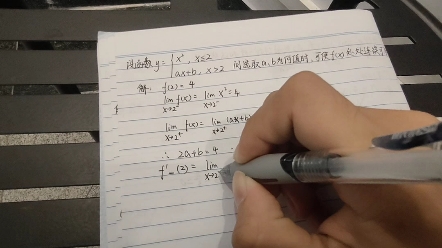 问函数 y = { x², x≤2
ax+b, x>2 问当取a,b为何值时,可使f(x)处处连续可
解: f(2) = 4
lim x→2⁻ f(x) = lim x→2⁻ x² = 4
lim x→2⁺ f(x) = lim x→2⁺ (ax+b)
∴ 2a+b = 4
f'₋(2) = lim x→2